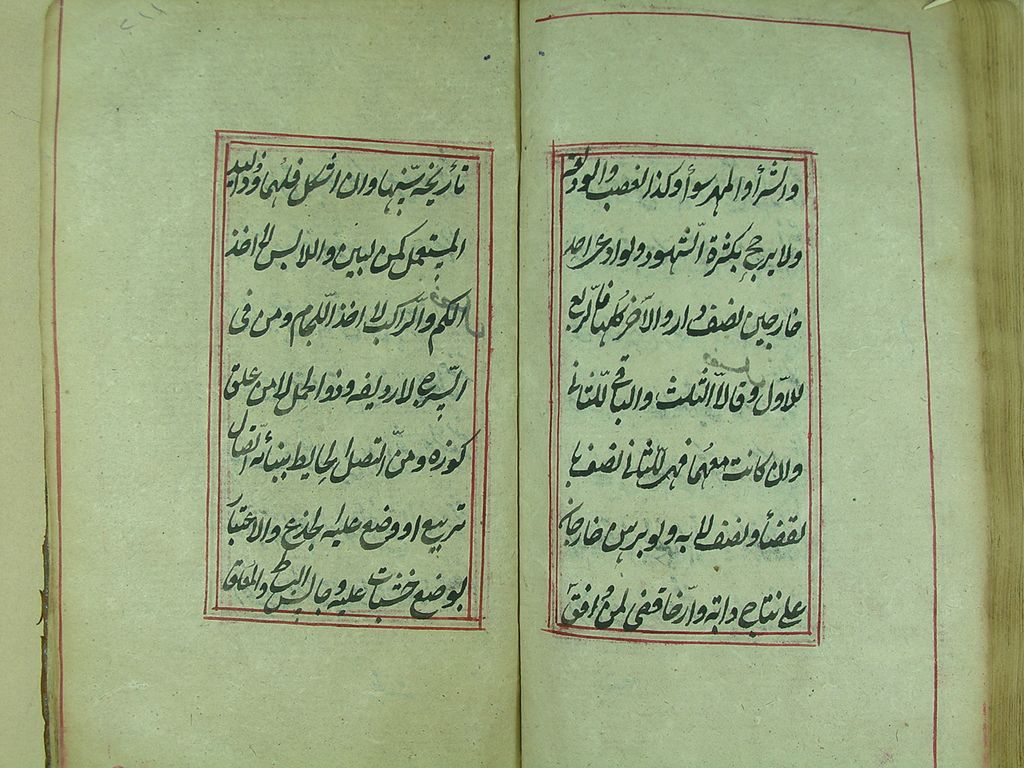 والشرأ والمهر سوأ وكذا الغصب والوديعة
ولا يرجح بكثرة الشهود ولو ادعى احد
خارجين نصف دار والآخر كلها فالربع
للاول وقالا الثلث والباقى للثانى
وان كانت معهما فهى للثانى نصفها
بقضأ ونصف لا به ولو برهن خارجان
على نتاج دابة وارخا قضى لمن وافق
تأريخه سنها وان اشكل فلهما وذو اليد
المستعمل كمن لبن واللابس لا اخذ
الكم والراكب لا اخذ اللجام ومن فى
السرج لا رديفه وذو الحمل لا من علق
كوزه ومن اتصل الحايط ببنائه اتصال
تربيع او وضع عليه الجذع والاعتبار
لوضع خشبات عليه وجالس البساط والمتعلق